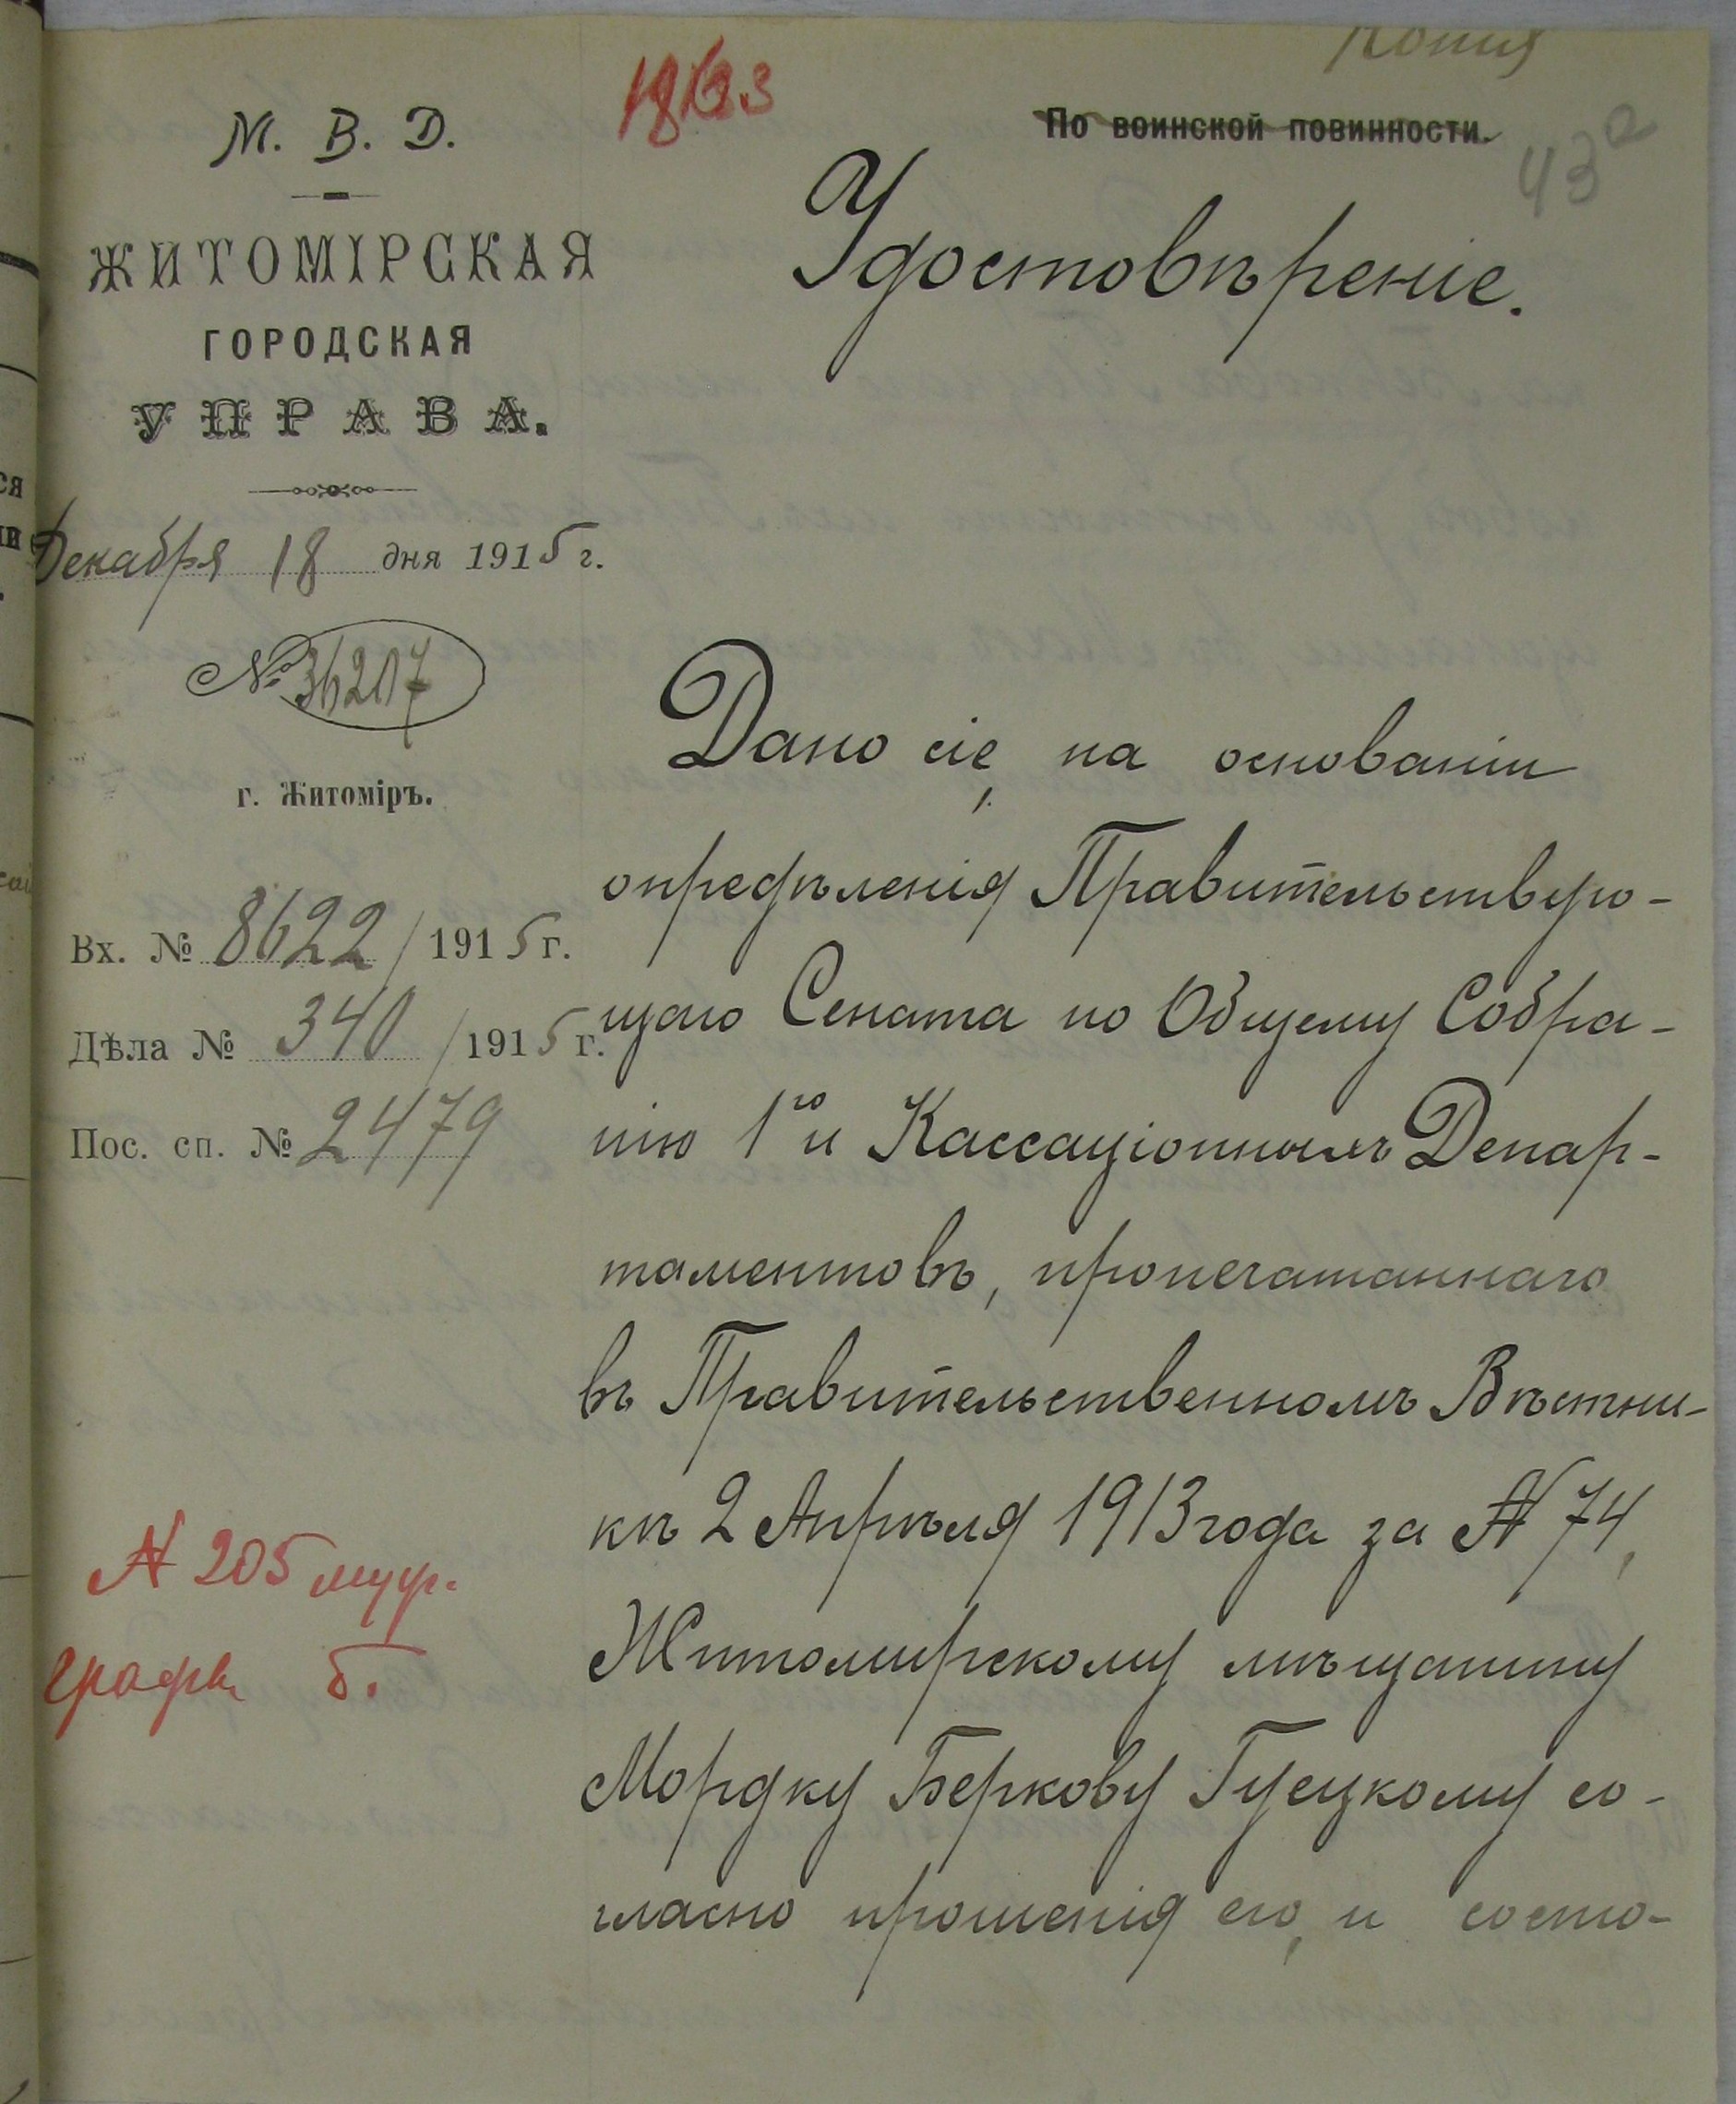 Копия
1863
По воинской повинности.
43а
М. В. Д.
ЖИТОМІРСКАЯ
ГОРОДСКАЯ
УПРАВА.
Декабря 18 дня 1915 г.
№ 36207
г. Житоміръ.
Вх. № 8622 / 1915 г.
Дѣла № 340 / 1915 г.
Пос. сп. № 2479
№ 205 муж.
графа б.
Удостовѣреніе.
Дано сіе на основаніи
опредѣленія Правительствую-
щаго Сената по Общему Собра-
нію 1го и Кассаціонныхъ Депар-
таментовъ, пропечатаннаго
въ Правительственномъ Вѣстни-
кѣ 2 Апрѣля 1913 года за № 74,
Житомирскому мѣщанину
Мордку Беркову Гусцкому со-
гласно прошенія его, и состо-